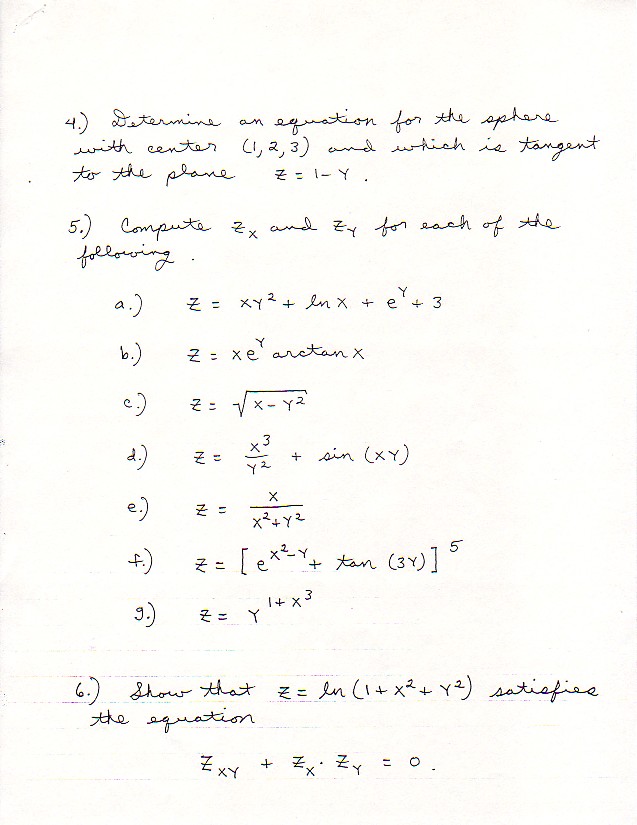 4.) Determine an equation for the sphere
with center (1, 2, 3) and which is tangent
to the plane z = 1 - Y .
5.) Compute z_X and z_Y for each of the
following .
a.) z = XY² + ln X + e^Y + 3
b.) z = Xe^Y arctan X
c.) z = √(X - Y²)
d.) z = X³/Y² + sin (XY)
e.) z = X/(X² + Y²)
f.) z = [e^(X²-Y) + tan (3Y)]^5
g.) z = Y^(1+X³)
6.) Show that z = ln (1 + X² + Y²) satisfies
the equation
z_XY + z_X · z_Y = 0 .